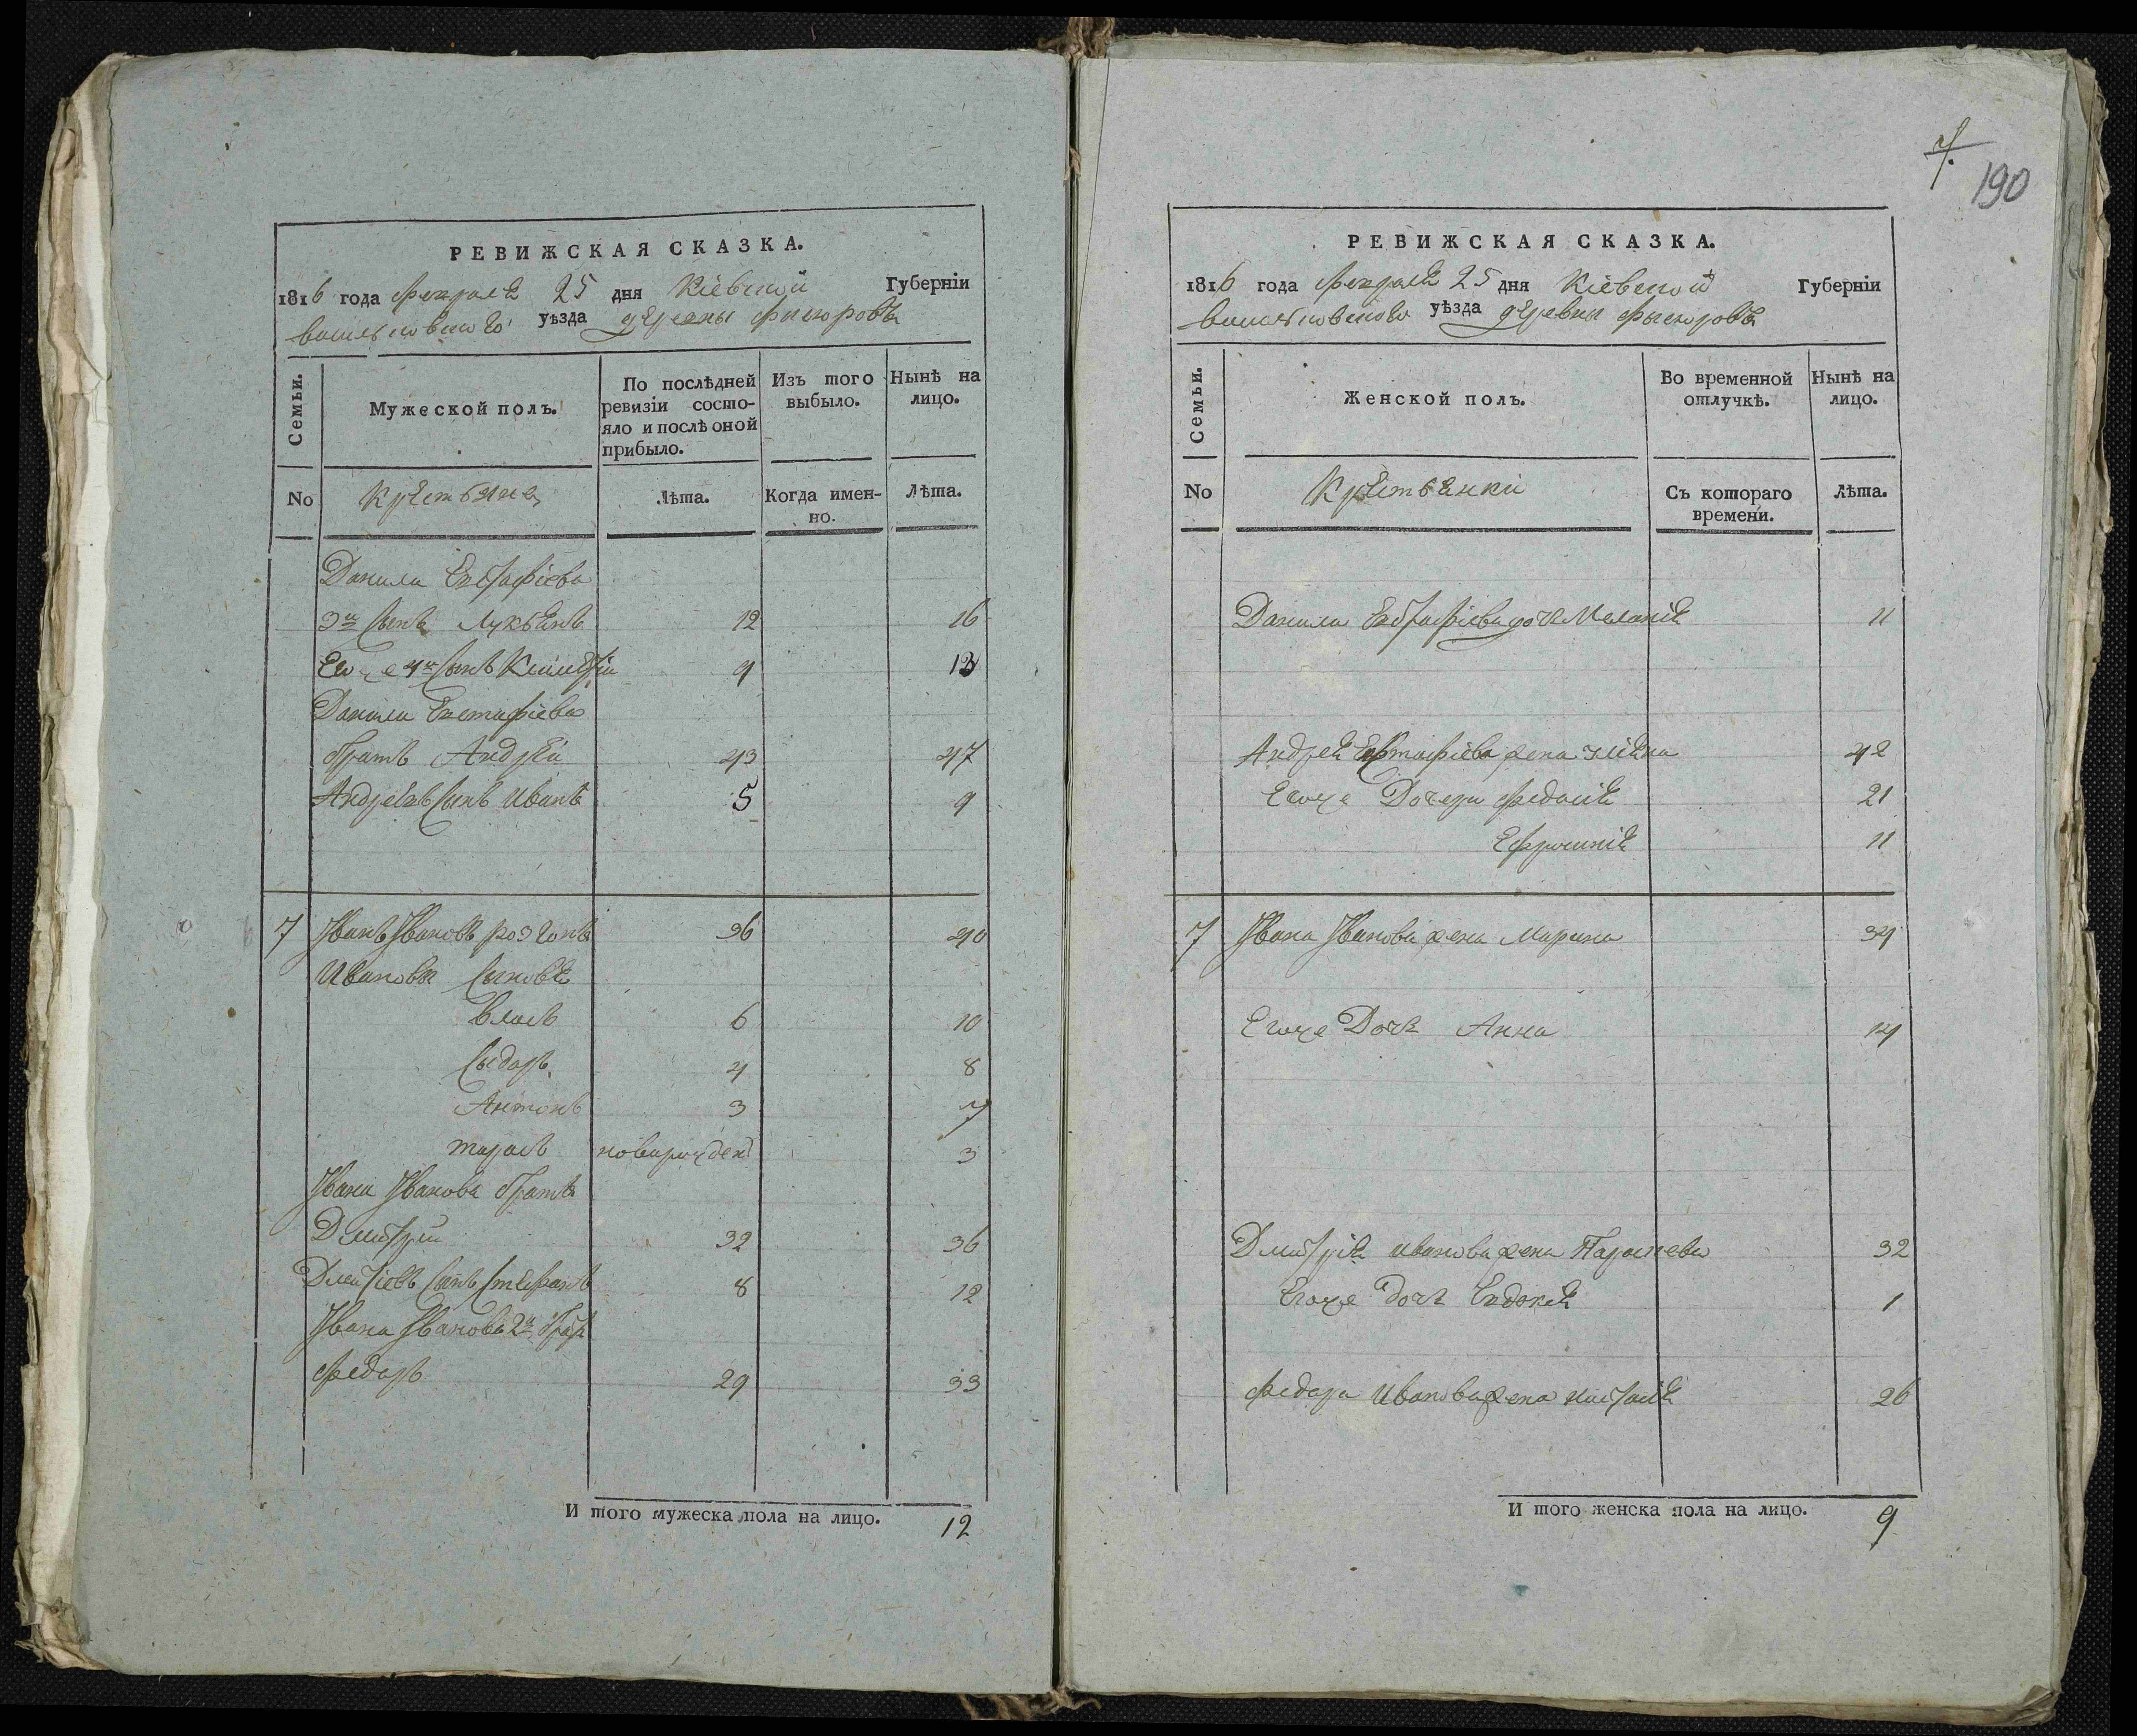 РЕВИЖСКАЯ СКАЗКА.
1816 года Февраля 25 дня Кіевской Губерніи
васильковского уѣзда деревны Фыоровъ
Семьи.
Мужеской полъ.
По послѣдней ревизіи состо-
яло и послѣ оной
прибыло.
Изъ того
выбыло.
Нынѣ на
лицо.
No
Крестьяне
Лѣта.
Когда имен-
но.
Лѣта.
Данила Евстафіева
3й Сынъ Лукьянъ 12 16
Егоже 4й Сынъ 9 13
Данила Евстафіева
братъ Андрей 43 47
Андреевъ Сынъ Иванъ 5 9
7 Іванъ Івановъ розгонъ 36 40
Ивановы Сыновя
Власъ 6 10
Сыдоръ 4 8
Антонъ 3 7
тарасъ новорожден 3
Івана Іванова братъ
Дмитрій 32 36
Дмитріевъ Сынъ Стефанъ 8 12
Івана Іванова 2й братъ
Федоръ 29 33
И того мужеска пола на лицо. 12
7.
190
РЕВИЖСКАЯ СКАЗКА.
1816 года Февраля 25 дня Кіевской Губерніи
васильковского уѣзда деревны
Семьи.
Женской полъ.
Во временной
отлучкѣ.
Нынѣ на
лицо.
No
Крестьянки
Съ котораго
времени.
Лѣта.
Данила Евстафіева дочь Меланія 11
Андрея Евстафіева жена 42
Егоже Дочери Федосія 21
Ефросинія 11
7 Івана Іванова жена Марина 34
Егоже Дочь Анна 14
Дмитрія иванова жена Параскева 32
Егоже дочь Евдокія 1
Федора Иванова жена настасія 26
И того женска пола на лицо. 9